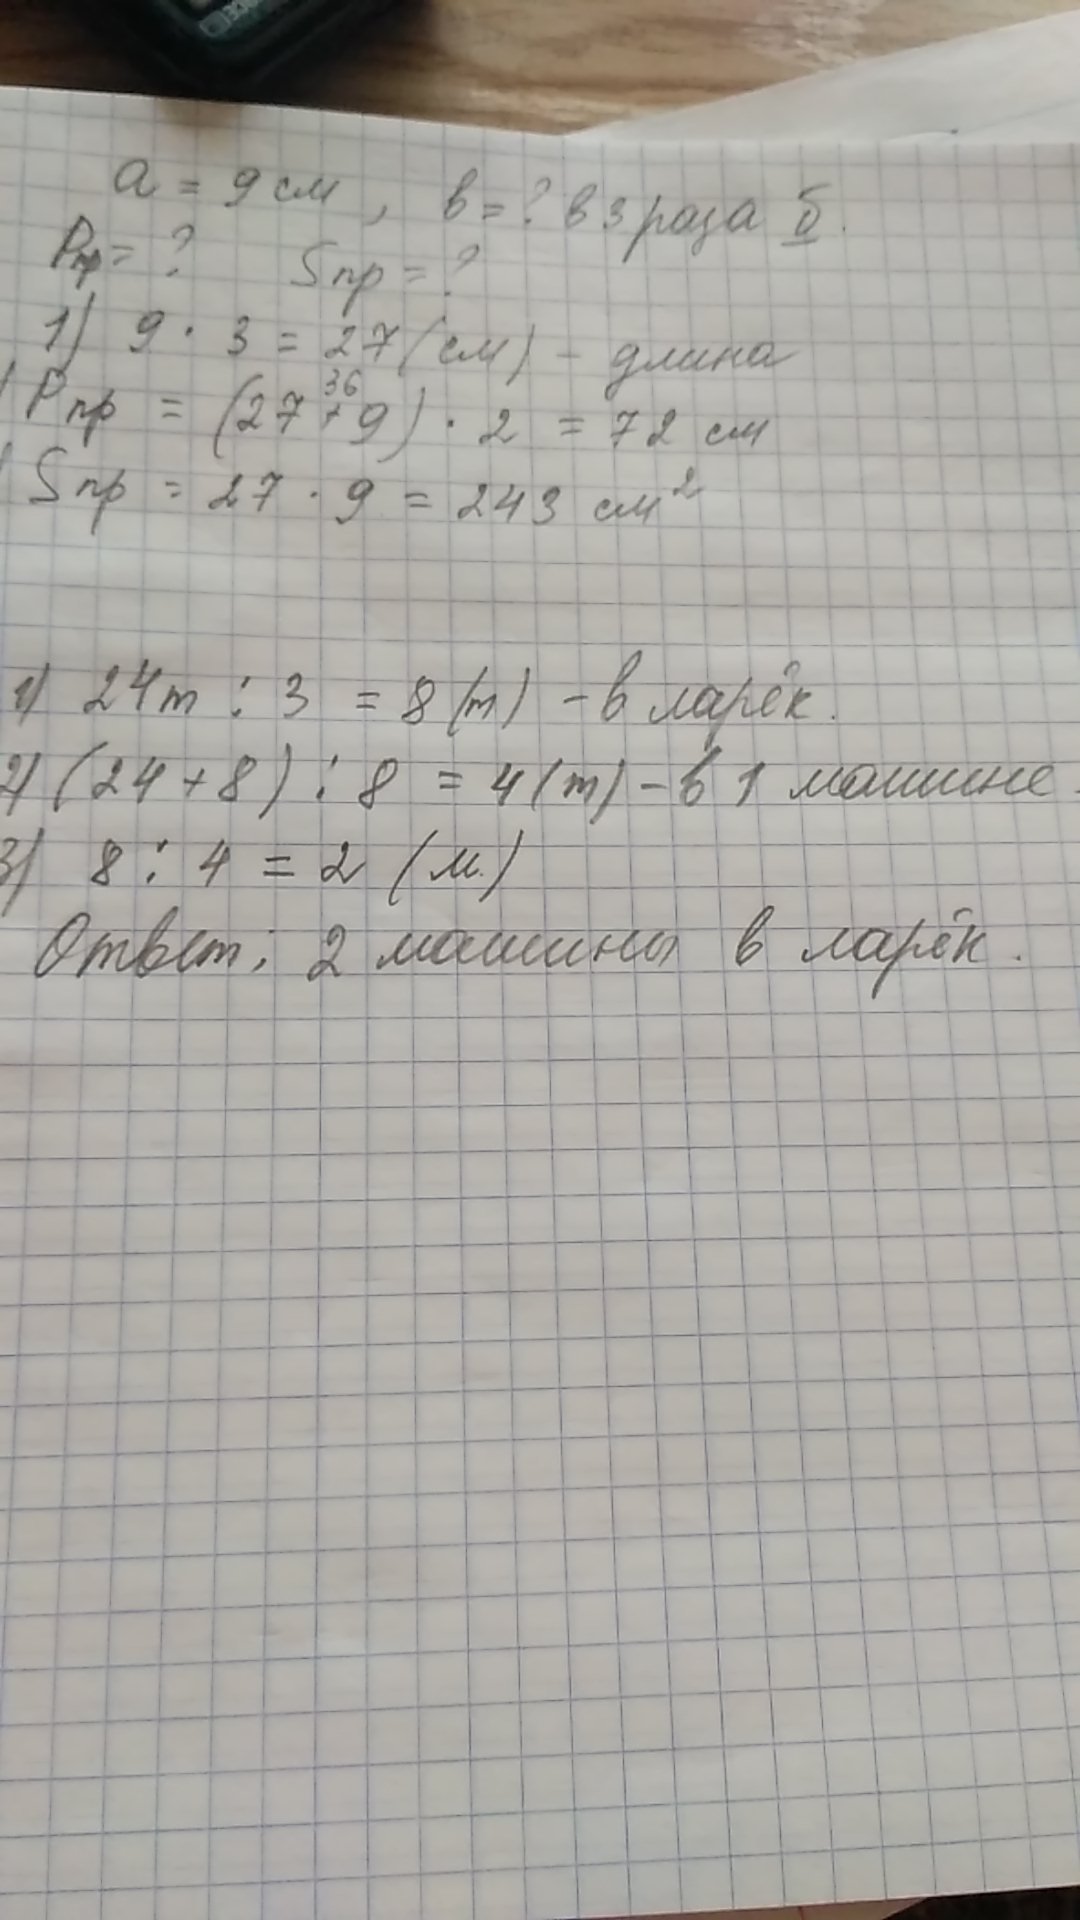 a = 9 см, в = ? в 3 раза б.
Pпр = ? Sпр = ?
1) 9 · 3 = 27 (см) - длина
36
) Pпр = (27 + 9) · 2 = 72 см
) Sпр = 27 · 9 = 243 см²
1) 24т : 3 = 8 (т) - в ларёк.
2) (24 + 8) : 8 = 4 (т) - в 1 машине
3) 8 : 4 = 2 (м.)
Ответ: 2 машины в ларёк.